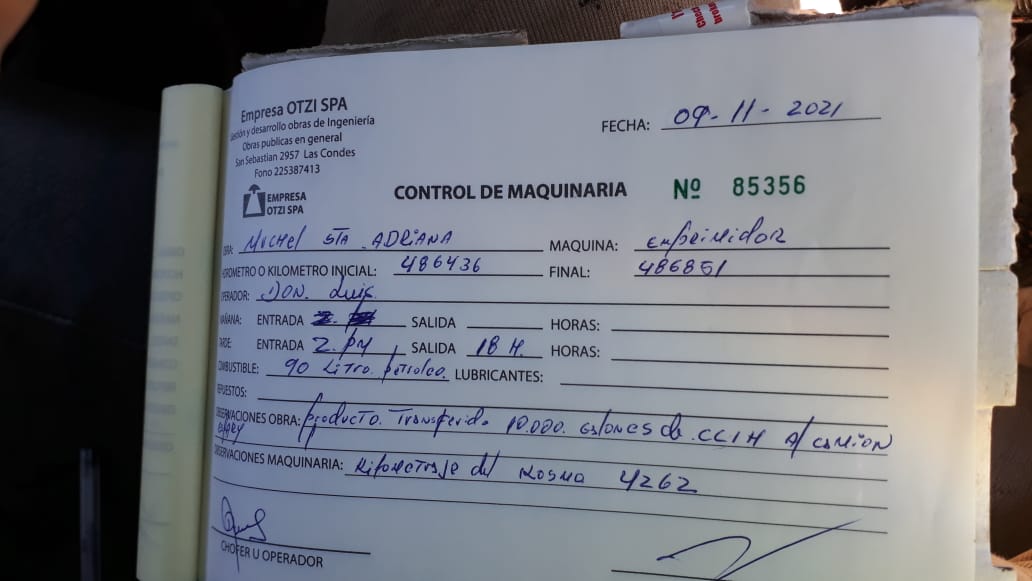 Empresa OTZI SPA
Gestión y desarrollo obras de Ingeniería
Obras publicas en general
San Sebastian 2957 Las Condes
Fono 225387413
FECHA: 09-11-2021
EMPRESA
OTZI SPA
CONTROL DE MAQUINARIA Nº 85356
OBRA: Michel STA. ADRIANA MAQUINA:
HOROMETRO O KILOMETRO INICIAL: 486436 FINAL: 486851
OPERADOR: DON. Luis
MAÑANA: ENTRADA SALIDA HORAS:
TARDE: ENTRADA 2. PM SALIDA 18 H. HORAS:
COMBUSTIBLE: 90 Litro. petroleo. LUBRICANTES:
REPUESTOS:
OBSERVACIONES OBRA: producto. Transferido 10.000. Galones de. A/ camion
OBSERVACIONES MAQUINARIA: Kilometraje del 4262
CHOFER U OPERADOR